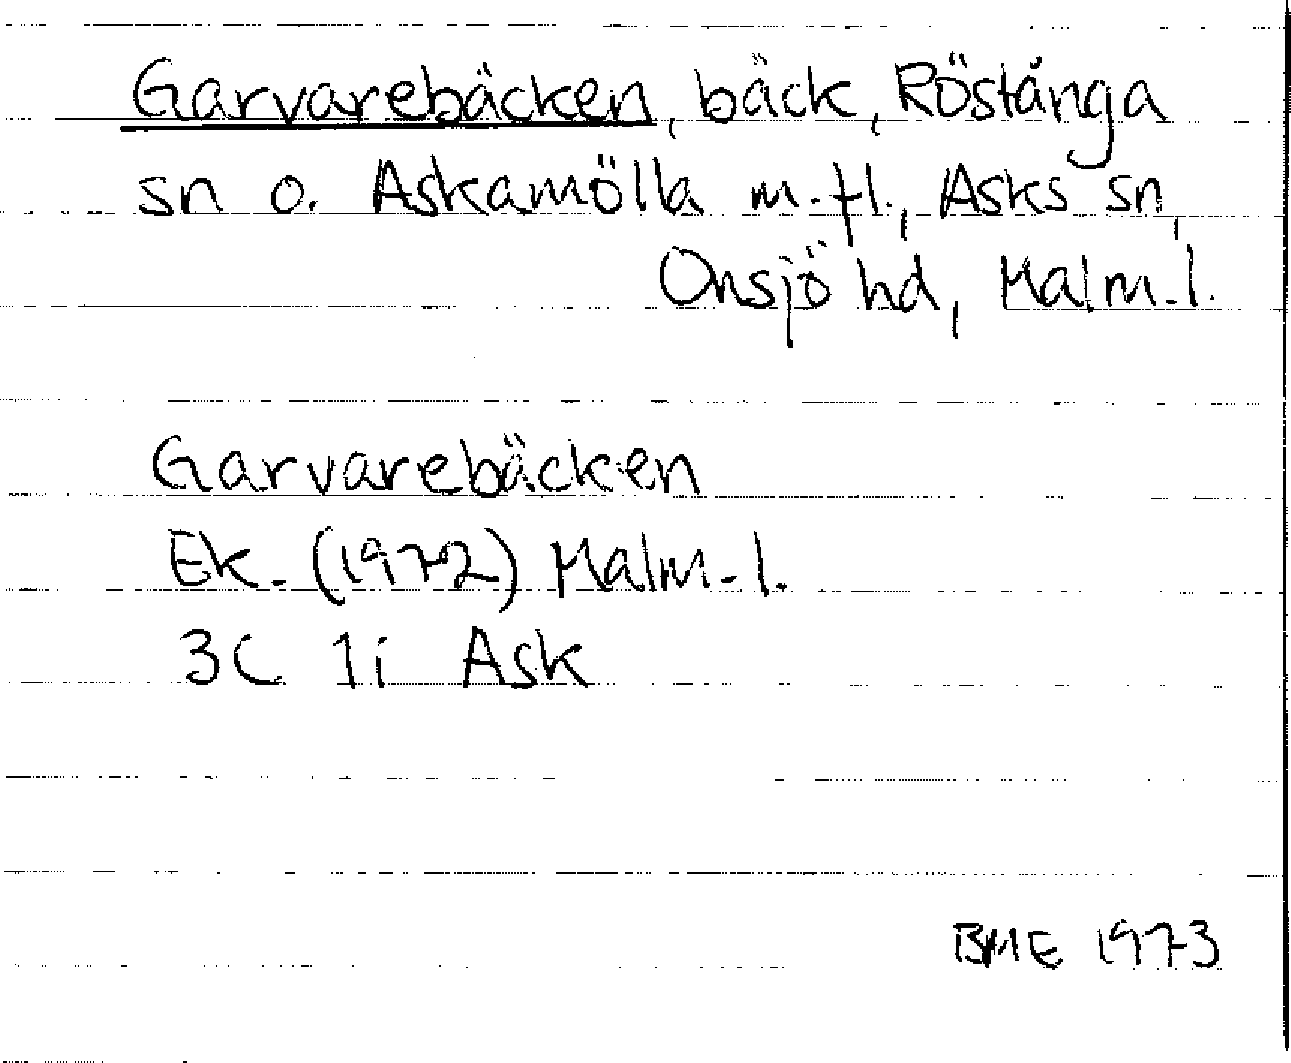 Garvarebäcken, bäck, Röstånga
sn o. Askamölla m.fl., Asks sn,
Onsjö hd, Malm.l.
Garvarebäcken
Ek. (1972) Malm.l.
3C 1i Ask
BME 1973